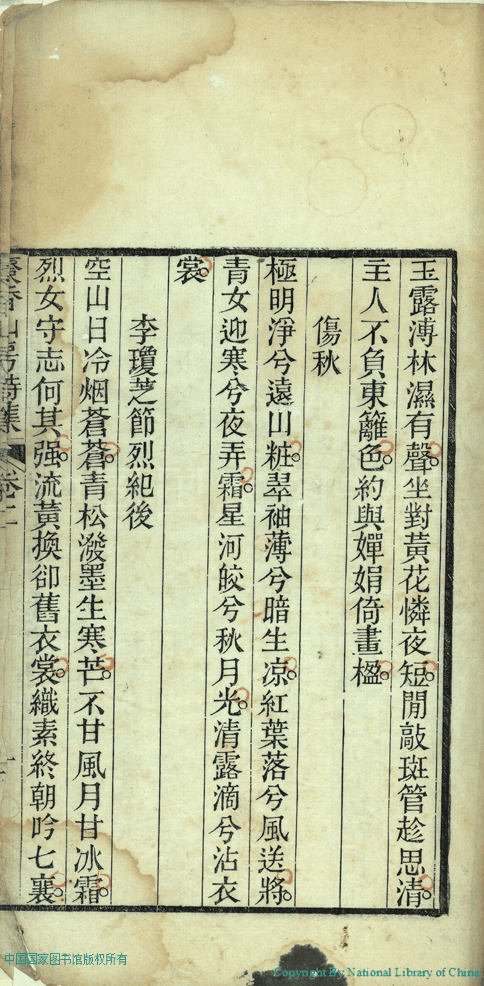 玉露溥林濕有聲坐對黃花憐夜短閒敲斑管趁思清
主人不負東籬色約與嬋娟倚畫楹
傷秋
極明淨兮遠山粧翠袖薄兮暗生凉紅葉落兮風送將
青女迎寒兮夜弄霜星河皎兮秋月光清露滴兮沾衣
裳
李瓊芝節烈紀後
空山日冷烟蒼蒼青松潑墨生寒芒不甘風月甘冰霜
烈女守志何其强流黃換卻舊衣裳織素終朝吟七襄
香山房詩集 卷二
中国国家图书馆版权所有
Copyright By National Library of China